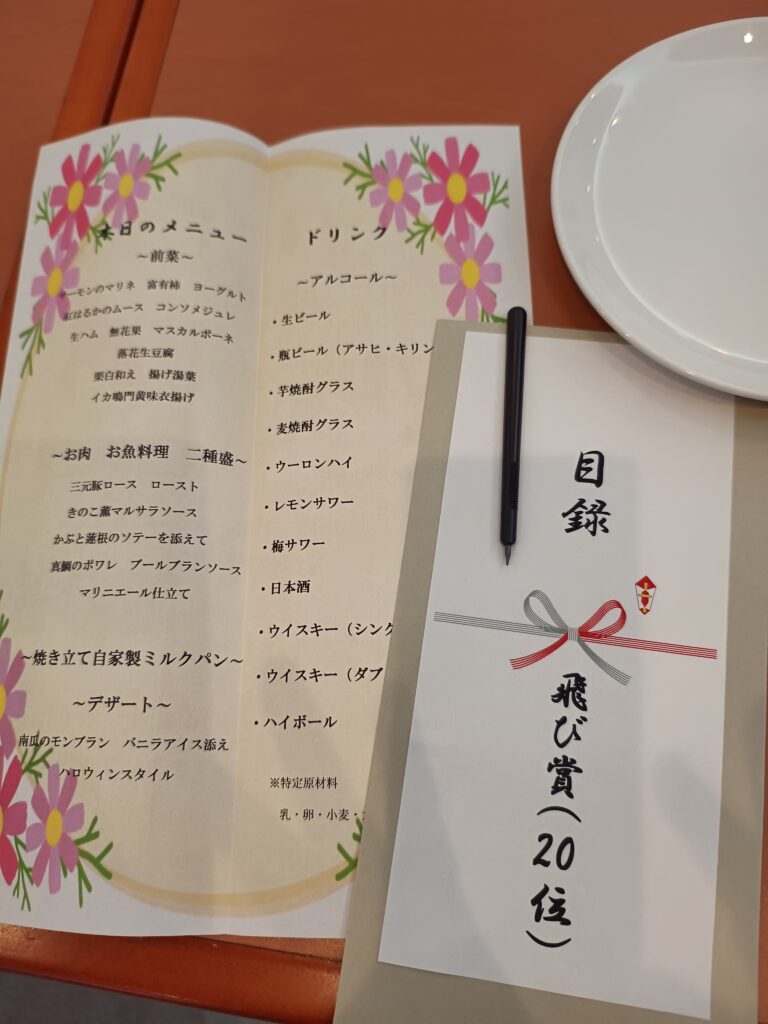 本日のメニュー
～前菜～
サーモンのマリネ　富有柿　ヨーグルト
紅はるかのムース　コンソメジュレ
生ハム　無花果　マスカルポーネ
落花生豆腐
栗白和え　揚げ湯葉
イカ鳴門黄味衣揚げ
～お肉　お魚料理　二種盛～
三元豚ロース　ロースト
きのこ薫マルサラソース
かぶと蓮根のソテーを添えて
真鯛のポワレ　ブールブランソース
マリニエール仕立て
～焼き立て自家製ミルクパン～
～デザート～
南瓜のモンブラン　バニラアイス添え
ハロウィンスタイル
ドリンク
～アルコール～
・生ビール
・瓶ビール（アサヒ・キリン
・芋焼酎グラス
・麦焼酎グラス
・ウーロンハイ
・レモンサワー
・梅サワー
・日本酒
・ウイスキー（シング
・ウイスキー（ダブ
・ハイボール
※特定原材料
乳・卵・小麦・
目録
飛び賞（20位）